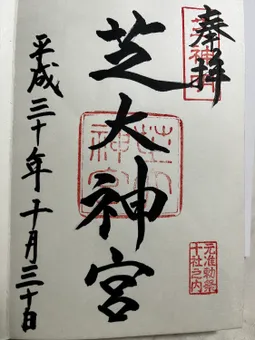 奉拝
芝大神宮
平成三十年十月三十日
元准勅祭
十社之内